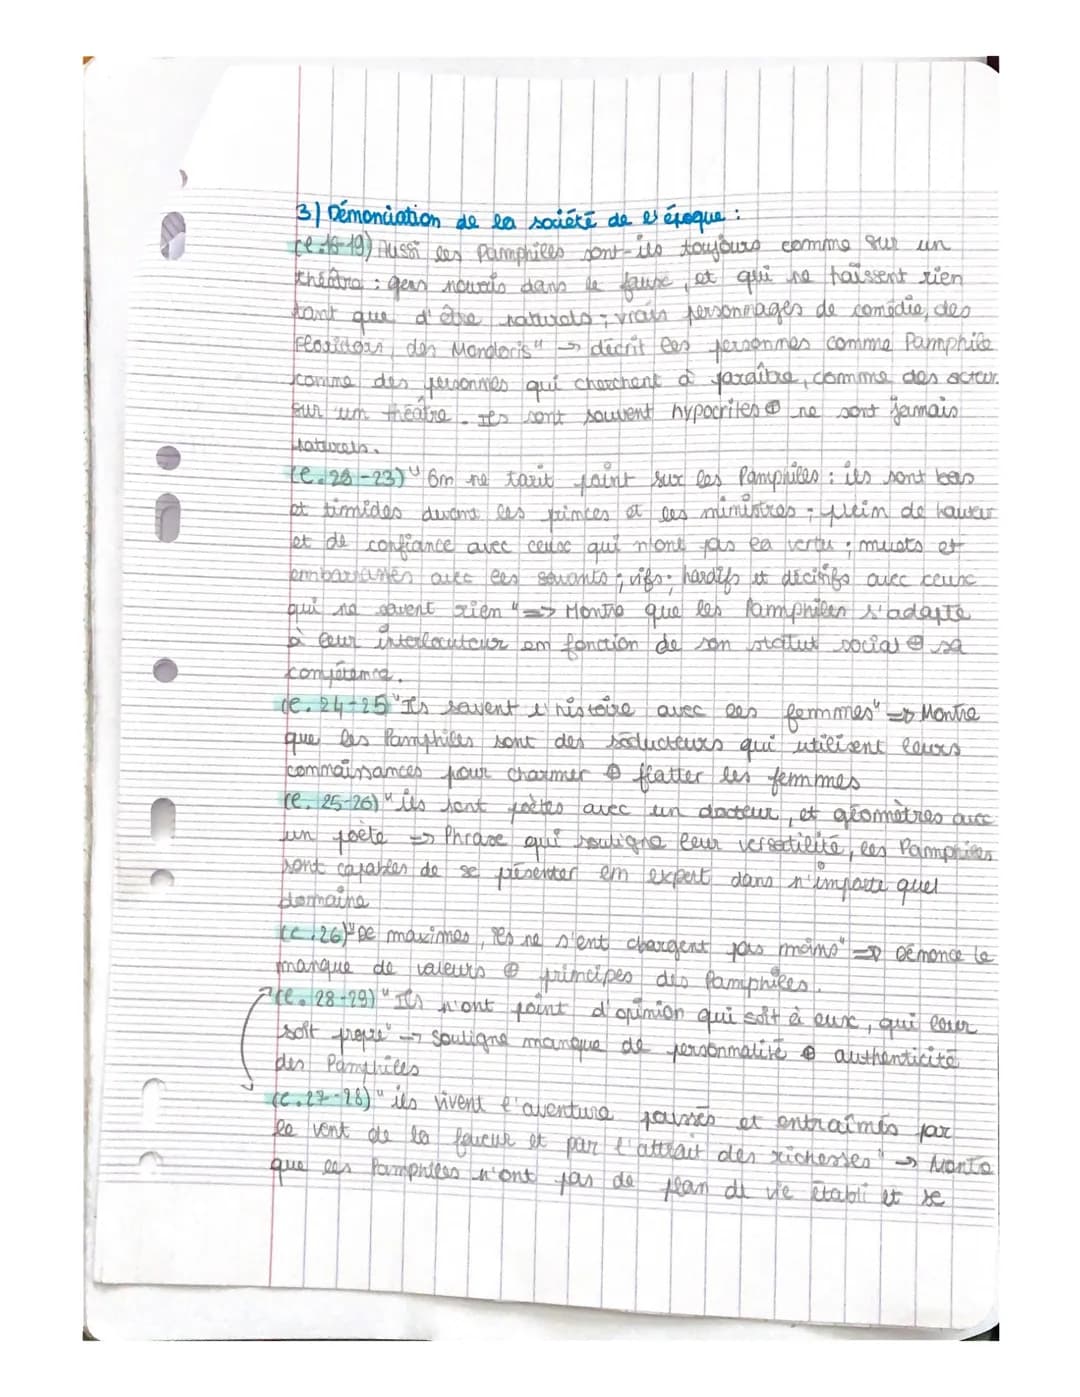 3) Dénonciation de la société de l'époque :
(l.18-19) Aussi les Pamphiles sont-ils toujours comme sur un
théâtre : gens nourris dans le faux, et qui ne haïssent rien
tant que d'être naturels ; vrais personnages de comédie, des
Floridors, des Mondoris" → décrit les personnes comme Pamphile
comme des personnes qui cherchent à paraître, comme des acteur
sur un théâtre. Ils sont souvent hypocrites ⊕ ne sont jamais
naturels.
(l. 20-23) "On ne tarit point sur les Pamphiles : ils sont bas
et timides devant les princes et les ministres ; plein de hauteur
et de confiance avec ceux qui n'ont pas la vertu ; muets et
embarrassés avec les savants ; vifs, hardifs et décisifs avec ceux
qui ne savent rien" => Montre que les Pamphiles s'adapte
à leur interlocuteur en fonction de son statut social ⊕ sa
compétence.
(l. 24-25 "Ils savent l'histoire avec les femmes" => Montre
que les Pamphiles sont des séducteurs qui utilisent leurs
connaissances pour charmer ⊕ flatter les femmes
(l. 25-26) "ils sont poètes avec un docteur, et géomètres avec
un poète => Phrase qui souligne leur versatilité, les Pamphiles
sont capables de se présenter en expert dans n'importe quel
domaine
(l.26) "De maximes, ils ne s'ent chargent pas moins" => Dénonce le
manque de valeurs ⊕ principes des Pamphiles.
(l. 28-29) "Ils n'ont point d'opinion qui soit à eux, qui leur
soit propre" → Souligne manque de personnalité ⊕ authenticité
des Pamphiles
(l.27-28) "ils vivent l'aventure poussés et entraînés par
le vent de la faveur et par l'attrait des richesses" → Montre
que les Pamphiles n'ont pas de plan de vie établi et se